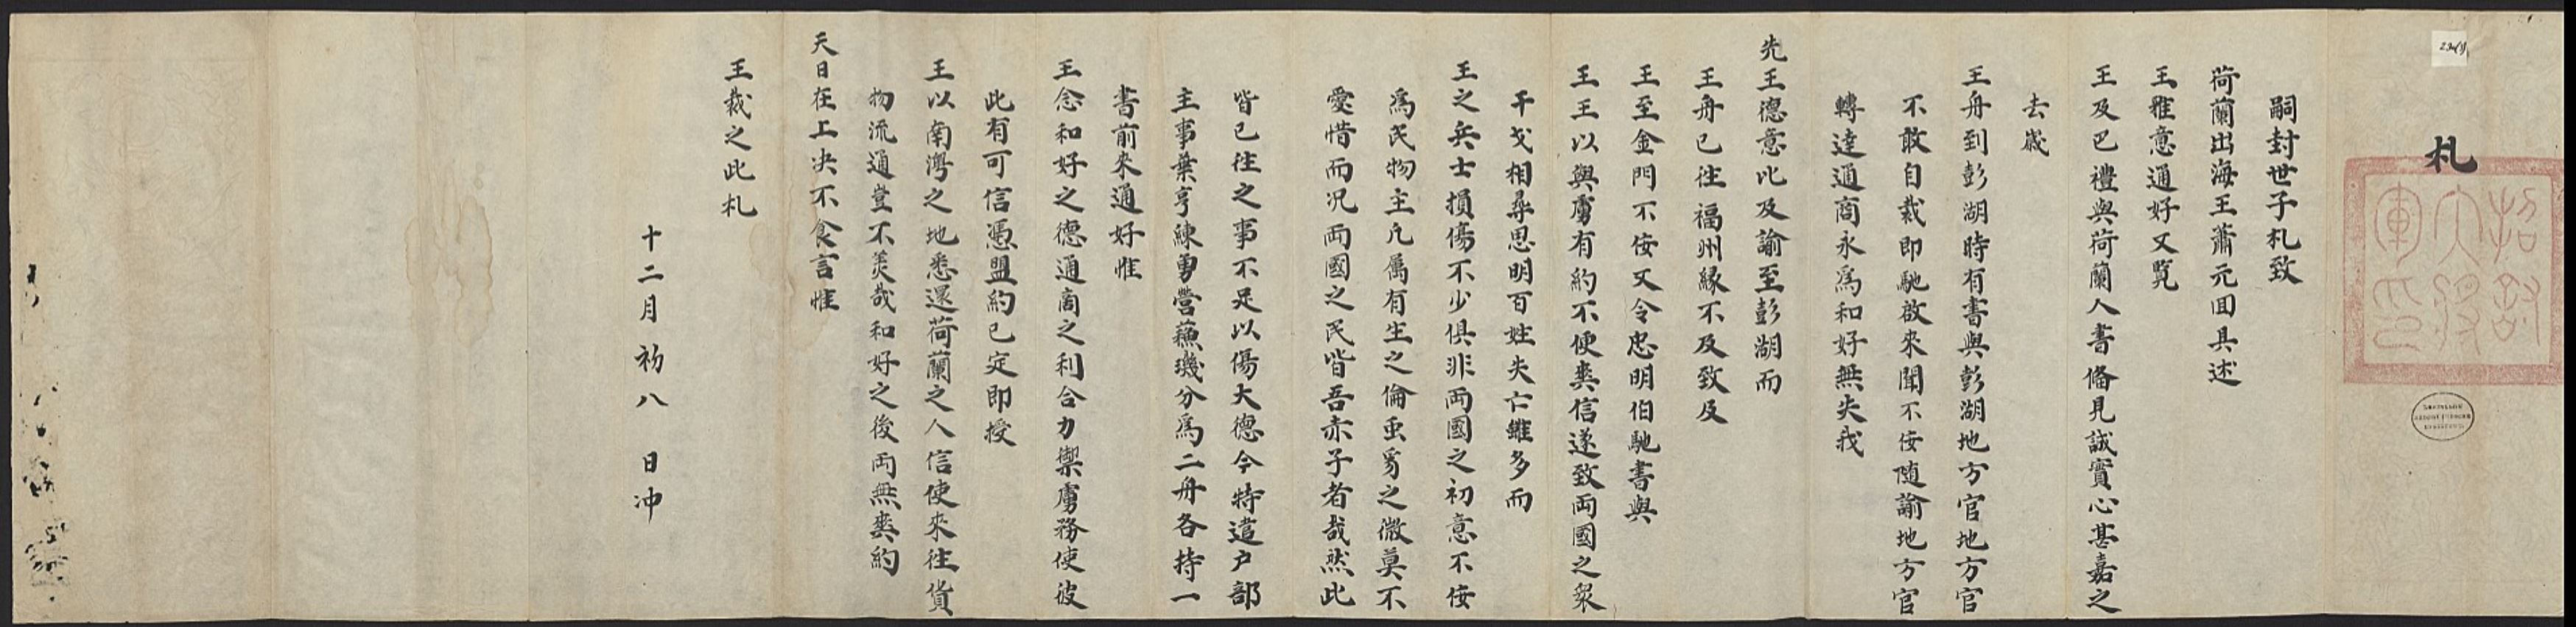 札
招討大將軍印
嗣封世子札致
荷蘭出海王蕭元囬具述
王雅意通好又覧
王及巴禮與荷蘭人書備見誠實心甚嘉之
去歲
王舟到彭湖時有書與彭湖地方官地方官
不敢自裁即馳啟來聞不佞随諭地方官
轉達通商永為和好無失我
先王德意比及諭至彭湖而
王舟已往福州緣不及致及
王至金門不佞又令忠明伯馳書與
王王以與虜有約不便爽信遂致両國之衆
干戈相尋思明百姓失亡雖多而
王之兵士損傷不少俱非両國之初意不佞
為民物主凡属有生之倫虫豸之微莫不
愛惜而况両國之民皆吾赤子者哉然此
皆已往之事不足以傷大德今特遣户部
主事葉亨練勇營蘓璣分為二舟各持一
書前來通好惟
王念和好之德通商之利合力禦虜務使彼
此有可信憑盟約已定即授
王以南灣之地悉還荷蘭之人信使來往貨
物流通豈不美哉和好之後両無爽約
天日在上决不食言惟
王裁之此札
十二月初八日冲